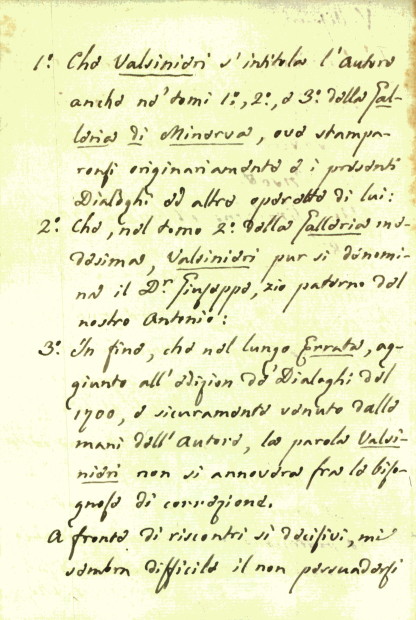 1.º Che Valsinieri s'intitola l'Autore
anche ne' tomi 1.º, 2.º, e 3.º della Gal-
leria di Minerva, ove stampa-
ronsi originariamente e i presenti
Dialoghi ed altre operette di lui:
2.º Che, nel tomo 2.º della Galleria me-
desima, Valsinieri pur si denomi-
na il D.r Giuseppe, zio paterno del
nostro Antonio:
3.º In fine, che nel lungo Errata, ag-
giunto all'edizion de' Dialoghi del
1700, e sicuramente venuto dalle
mani dell'Autore, la parola Valsi-
nieri non si annovera fra le biso-
gnose di correzione.
A fronte di riscontri sì decisivi, mi
sembra difficile il non persuadersi